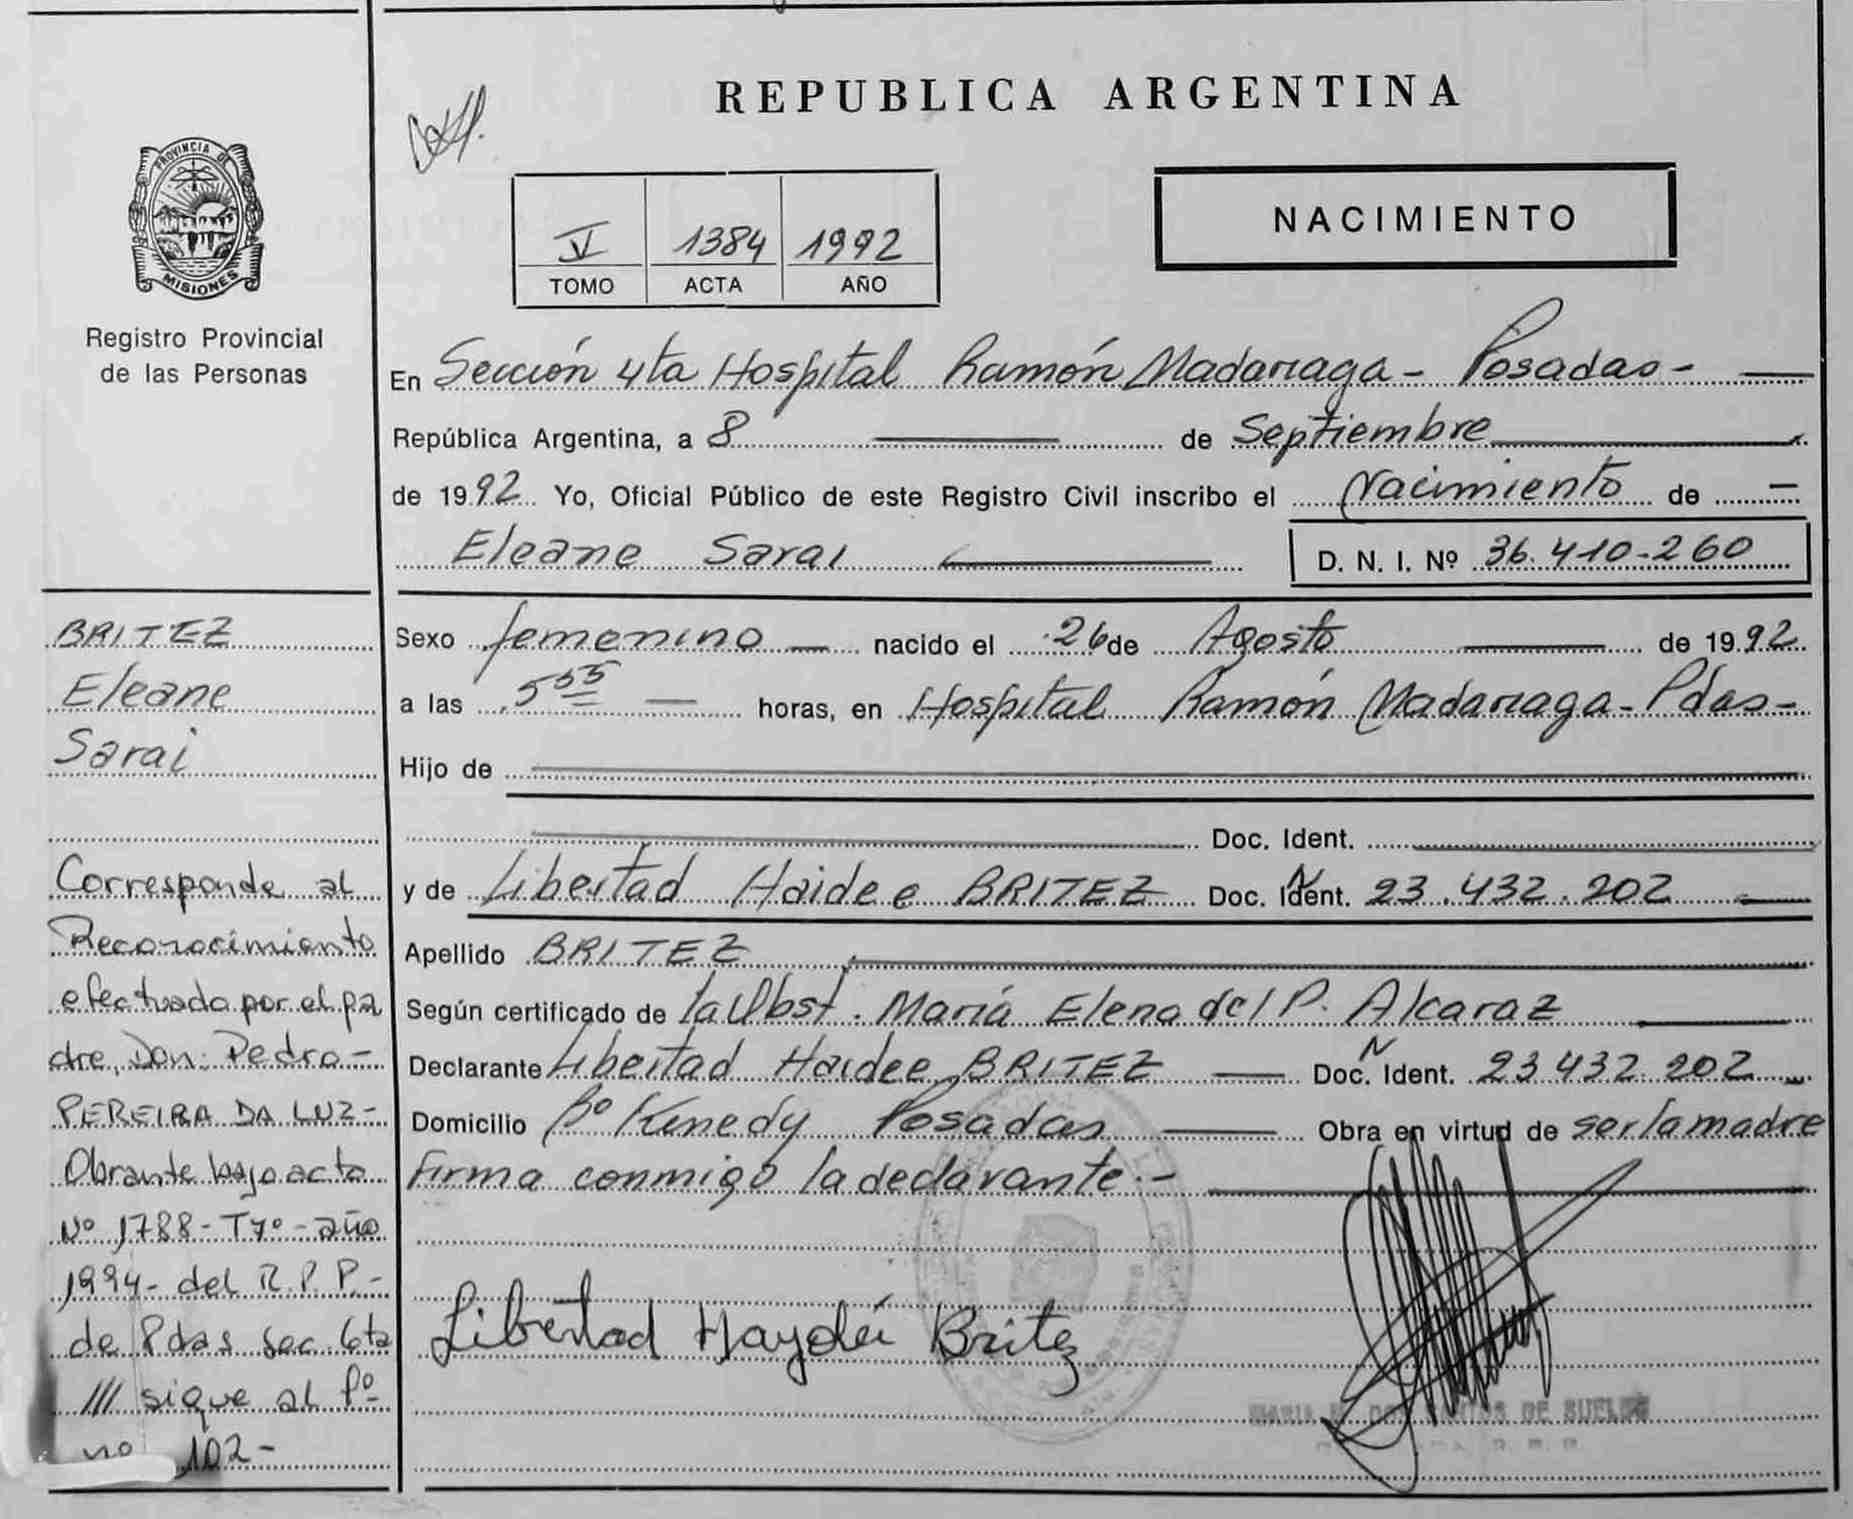 REPUBLICA ARGENTINA
PROVINCIA DE
MISIONES
Registro Provincial
de las Personas
V 1384 1992
TOMO ACTA AÑO
NACIMIENTO
En Sección 4ta Hospital Ramón Madariaga - Posadas -
República Argentina, a 8 de Septiembre
de 1992 Yo, Oficial Público de este Registro Civil inscribo el Nacimiento de
Eleane Sarai
D. N. I. Nº 36.410-260
Sexo femenino nacido el 26 de Agosto de 1992
a las 5 55 horas, en Hospital Ramón Madariaga - Pdas -
Hijo de
Doc. Ident.
y de Libertad Haidee BRITEZ Doc. N Ident. 23.432.202
Apellido BRITEZ
Según certificado de la Obst. María Elena del P. Alcaraz
Declarante Libertad Haidee BRITEZ Doc. N Ident. 23.432.202
Domicilio Bº Kenedy Posadas Obra en virtud de ser la madre
firma conmigo la declarante.-
Libertad Haydeé Britez
DE SUELDO
BRITEZ
Eleane
Sarai
Corresponde al
Reconocimiento
efectuado por el pa
dre, Don: Pedro -
PEREIRA DA LUZ -
Obrante bajo acta
Nº 1788 - Tº 7º - año
1994 - del R.P.P. -
de Pdas Sec. 6ta
/// sigue al fº
nº 102 -